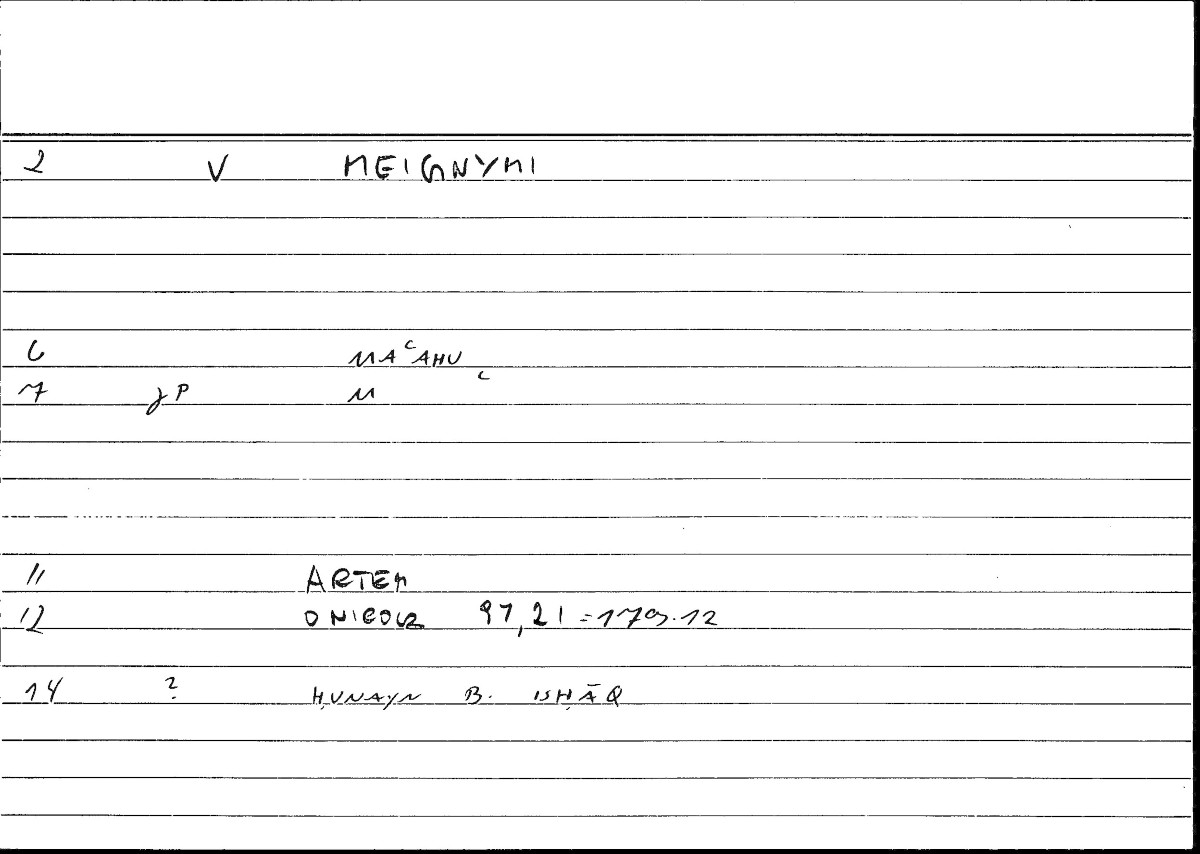 2 V MEIGNYMI
6 MAʿAHU
7 M
11 ARTEM
12 ONIROCR 97,21 = 179.12
14 ? ḤUNAYN B. ISḤĀQ